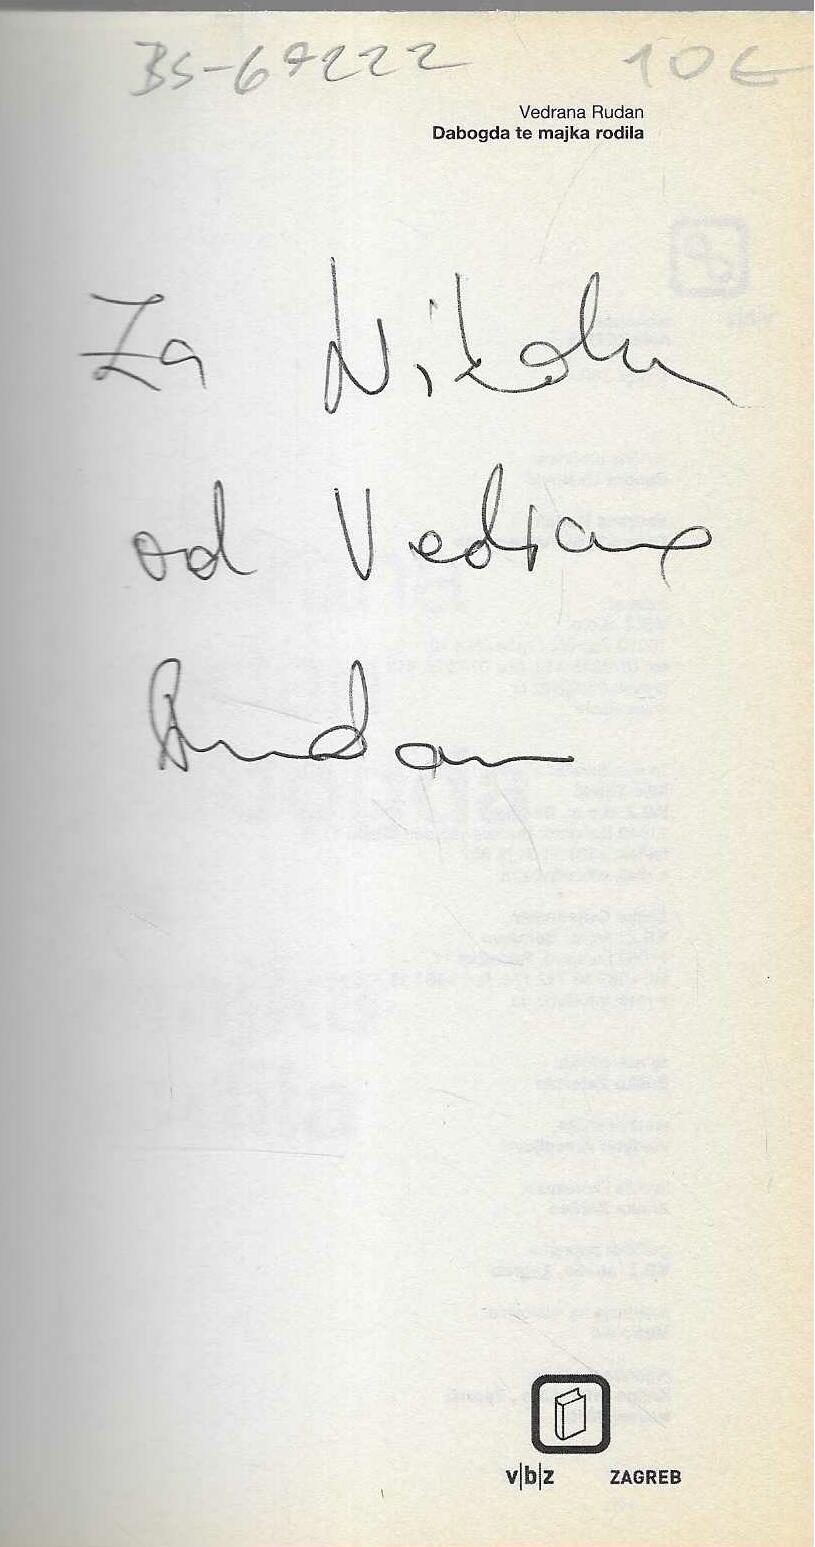 BS-67222 10€
Vedrana Rudan
Dabogda te majka rodila
Za Nikolu
od Vedrane
Rudan
v|b|z ZAGREB